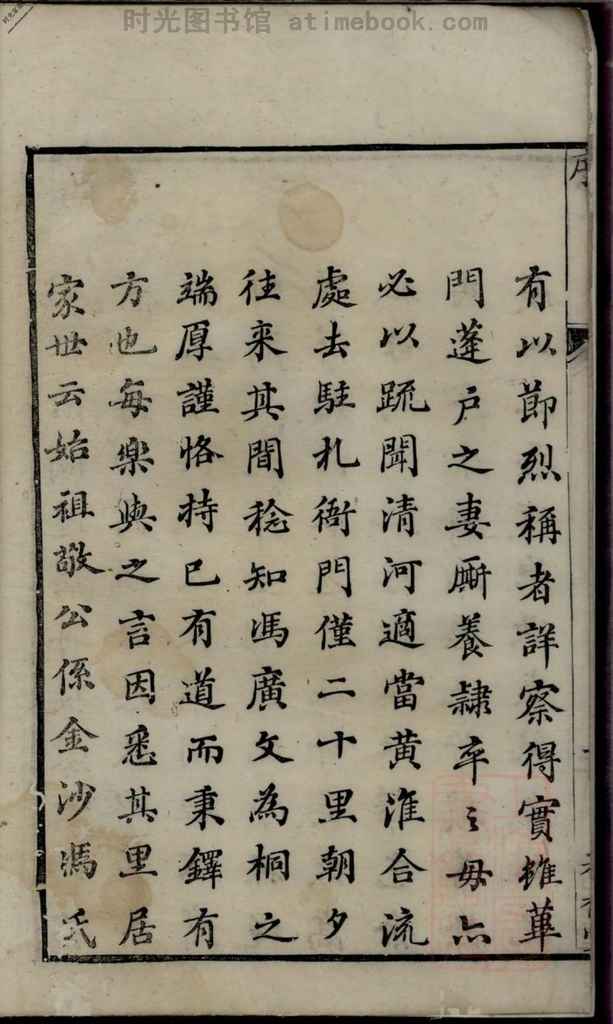 时光图书馆 atimebook.com
序
有以節烈稱者詳察得實雖蓽
門蓬戶之妻厮養隷卒之母亦
必以疏聞清河適當黄淮合流
處去駐札衙門僅二十里朝夕
往来其間稔知馮廣文為桐之
端厚謹恪持己有道而秉鐸有
方也每樂與之言因悉其里居
家世云始祖敬公係金沙馮氏